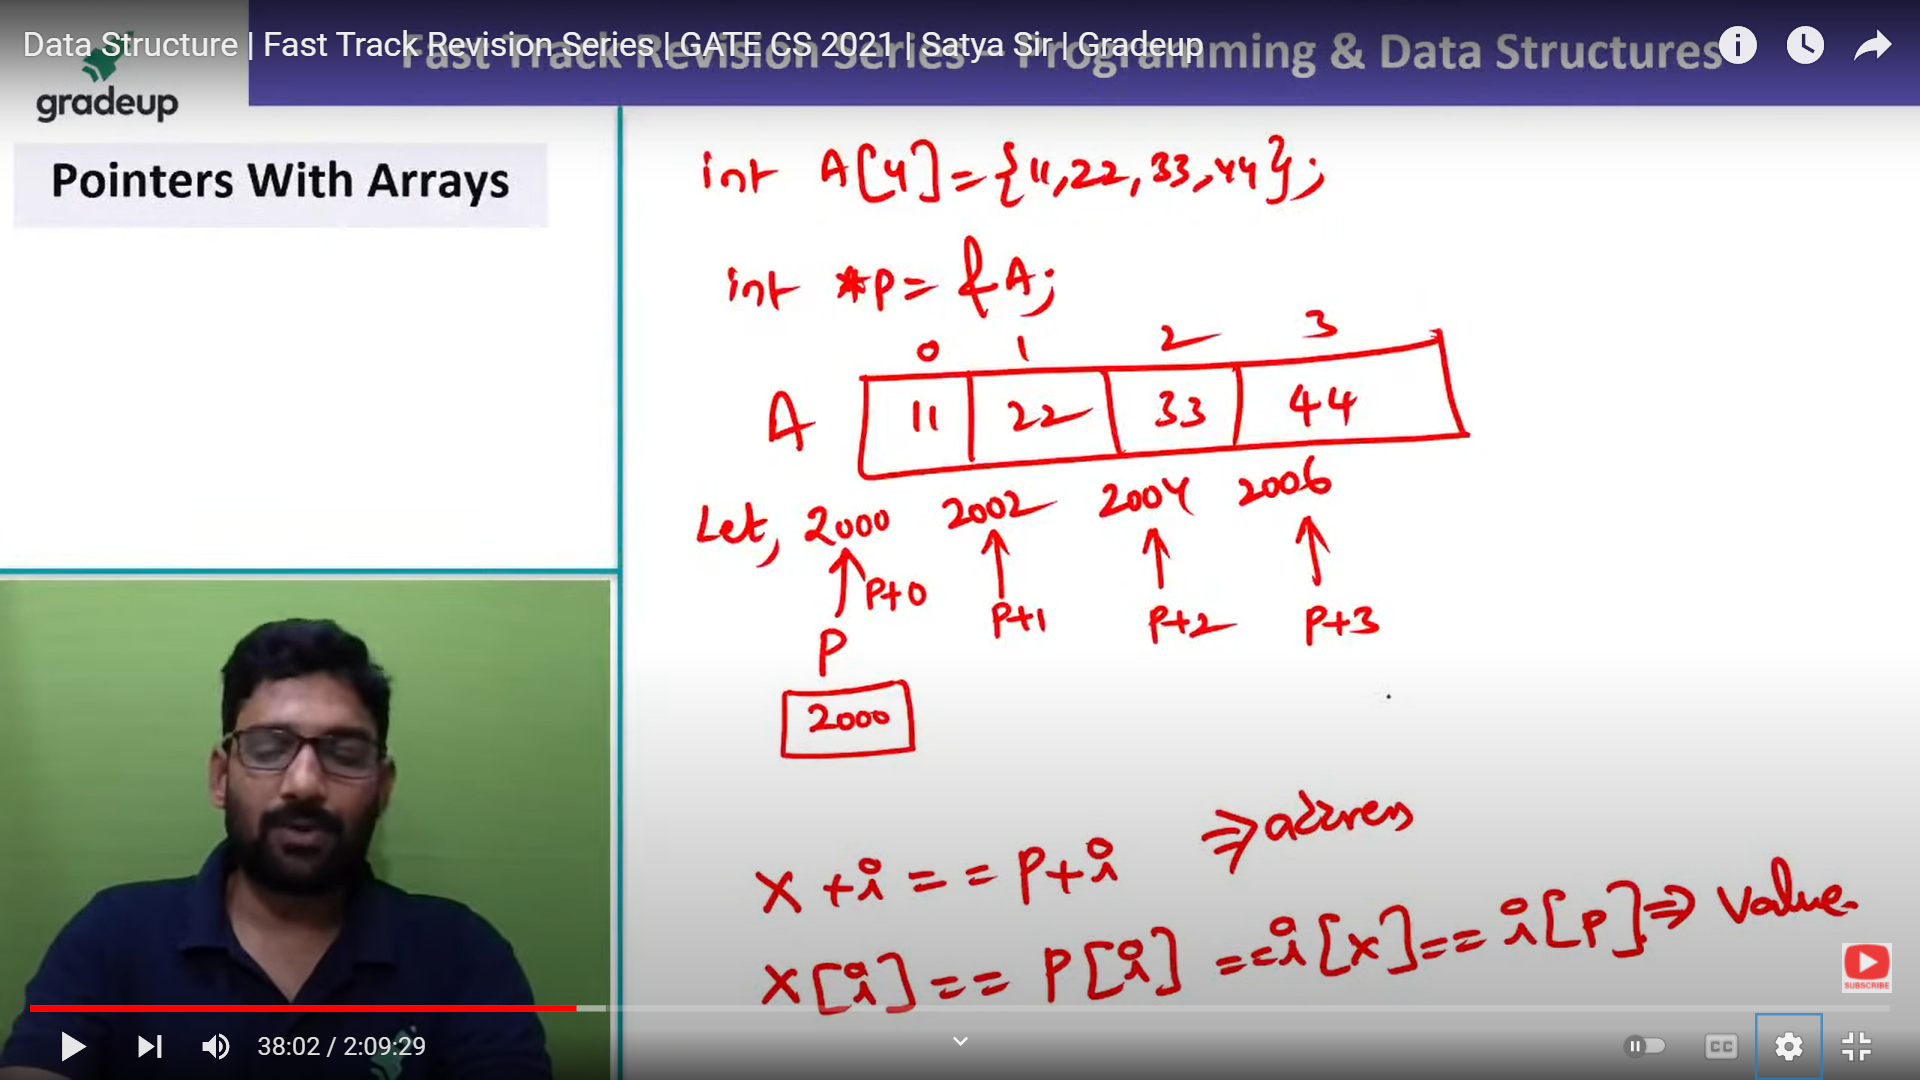 Data Structure | Fast Track Revision Series | GATE CS 2021 | Satya Sir | Gradeup
Fast Track Revision Series - Programming & Data Structures
gradeup
Pointers With Arrays
int A[4]={11,22,33,44};
int *P= &A;
0 1 2 3
A 11 22 33 44
Let, 2000 2002 2004 2006
P+0 P+1 P+2 P+3
P
2000
x+i == P+i ⇒ address
x[i] == P[i] == i[x] == i[P] ⇒ value.
SUBSCRIBE
38:02 / 2:09:29
CC